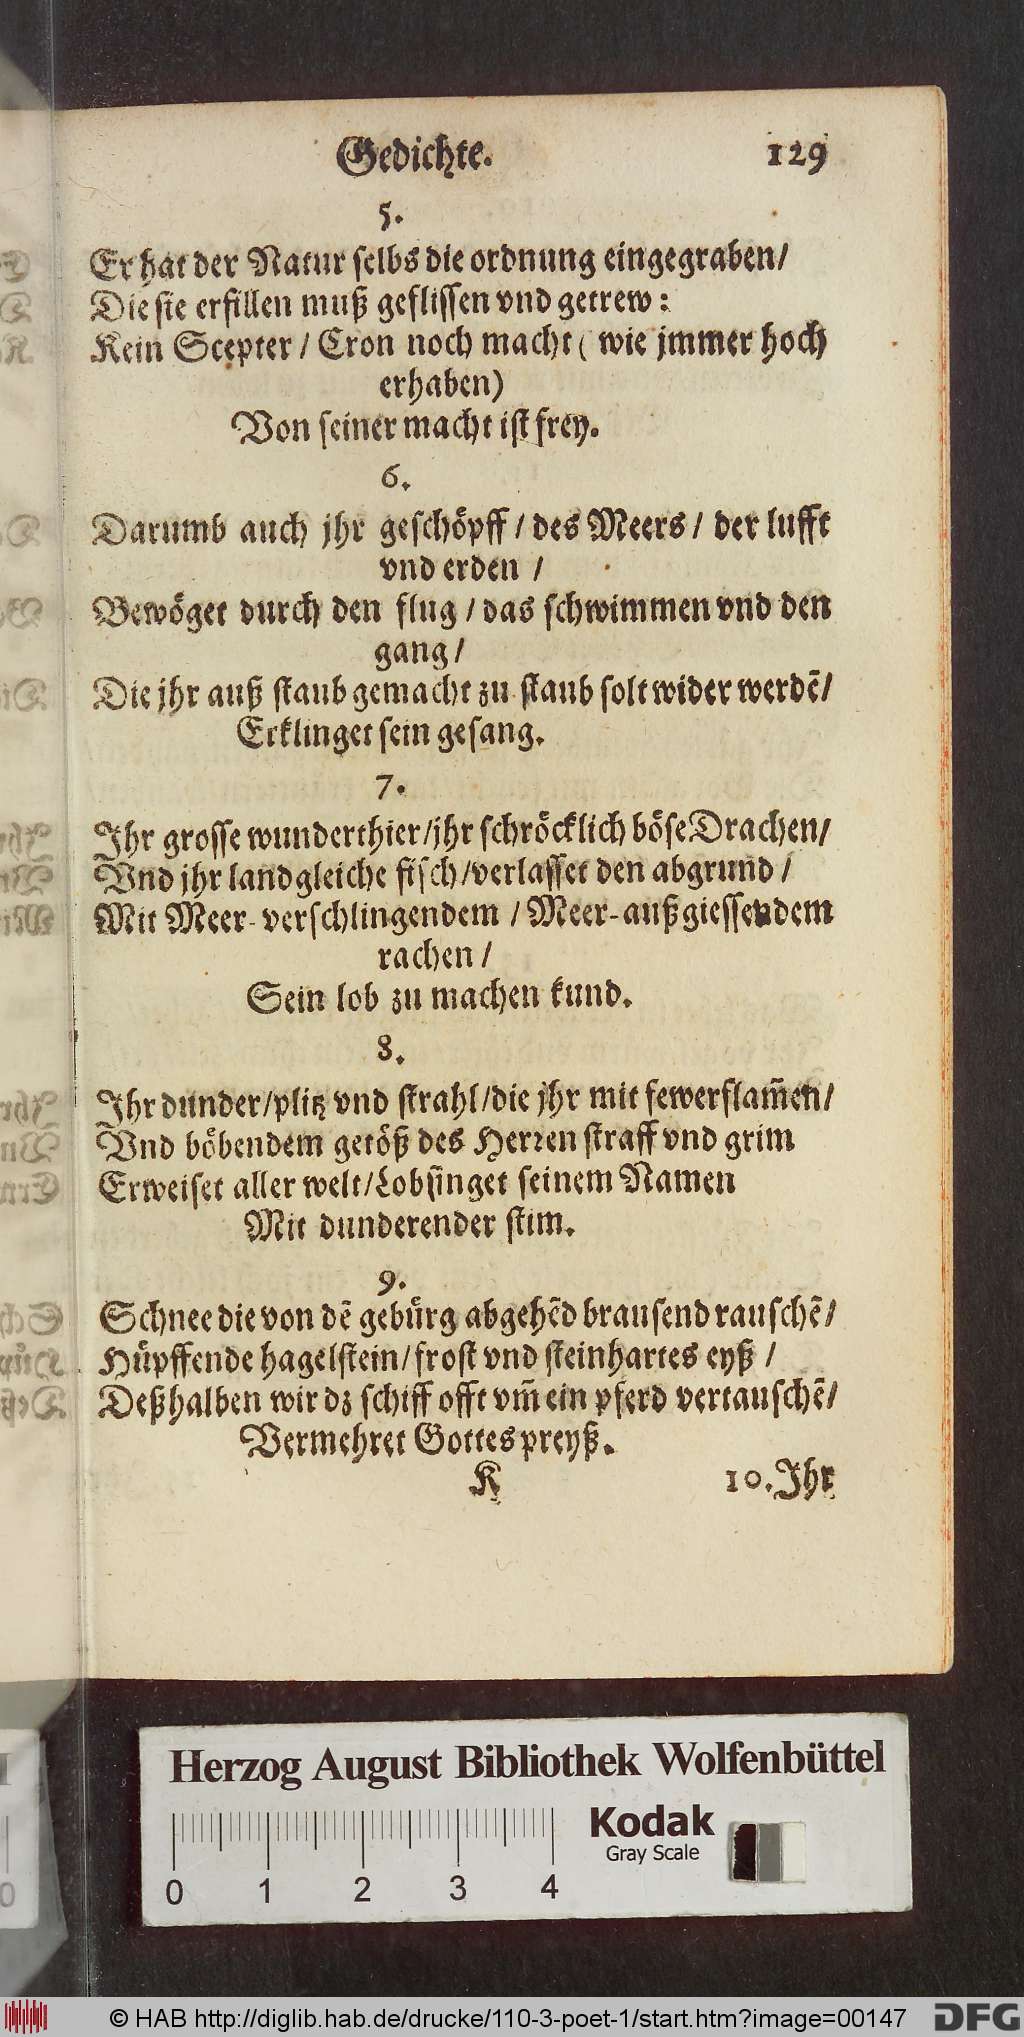 Gedichte. 129
5.
Er hat der Natur selbs die ordnung eingegraben/
Die sie erfillen muß geflissen vnd getrew:
Kein Scepter / Cron noch macht ( wie jmmer hoch
erhaben)
Von seiner macht ist frey.
6.
Darumb auch jhr geschöpff / des Meers / der lufft
vnd erden /
Bewöget durch den flug / das schwimmen vnd den
gang /
Die jhr auß staub gemacht zu staub solt wider werdẽ/
Erklinget sein gesang.
7.
Jhr grosse wunderthier/jhr schröcklich böse Drachen/
Vnd jhr landgleiche fisch/verlasset den abgrund /
Mit Meer-verschlingendem / Meer-außgiessendem
rachen /
Sein lob zu machen kund.
8.
Jhr dunder/plitz vnd strahl/die jhr mit fewerflam̃en/
Vnd böbendem getöß des Herren straff vnd grim
Erweiset aller welt/Lobsinget seinem Namen
Mit dunderender stim.
9.
Schnee die von dẽ gebürg abgehẽd brausend rauschẽ/
Hüpffende hagelstein/frost vnd steinhartes eyß /
Deßhalben wir dz schiff offt vm̃ ein pferd vertauschẽ/
Vermehret Gottes preyß.
K 10. Jhr
Herzog August Bibliothek Wolfenbüttel
Kodak
Gray Scale
0 1 2 3 4
© HAB http://diglib.hab.de/drucke/110-3-poet-1/start.htm?image=00147 DFG